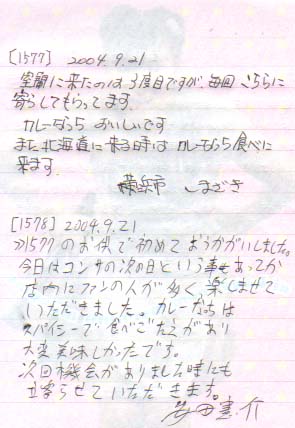 [1577] 2004.9.21
室蘭に来たのは3度目ですが、毎回こちらに
寄らしてもらってます。
カレーなっち おいしいです
また北海道に来る時は カレーなっち食べに
来ます。
横浜市 しまざき
[1578] 2004.9.21
≫1577のお供で初めておうかがいしました。
今日はコンサの次の日という事もあってか
店内にファンの人が多く、楽しませて
いただきました。カレーなっちは
スパイシーで食べごたえがあり
大変美味しかったです。
次回機会がありました時にも
立寄らせていただきます。
田憲介